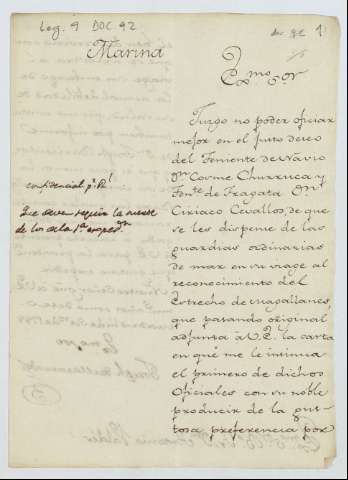 Leg. 9 DOC. 92
1
Marina
Exmo Sor
Juzgo no poder oficiar
mejor en el justo deseo
del Teniente de Navio
Dn Cosme Churruca y
Tente de Fragata Dn
Ciriaco Cevallos, de que
se les dispense de las
guardias ordinarias
de mar en su viage al
reconocimiento del
Estrecho de Magallanes,
que pasando original
adjunta à V.E. la carta
en que me le intima
el primero de dichos
Oficiales con su noble
producir de la gus-
tosa preferencia por
confidencial
Que deven seguir la suerte
de los de la 1a